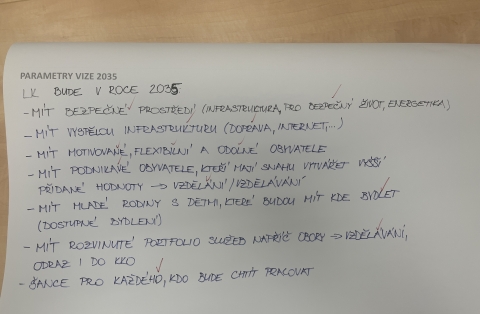 PARAMETRY VIZE 2035
LK BUDE V ROCE 2035
- MÍT BEZPEČNÉ PROSTŘEDÍ (INFRASTRUKTURA, PRO BEZPEČNÝ ŽIVOT, ENERGETIKA)
- MÍT VYSPĚLOU INFRASTRUKTURU (DOPRAVA, INTERNET,...)
- MÍT MOTIVOVANÉ, FLEXIBILNÍ A ODOLNÉ OBYVATELE
- MÍT PODNIKAVÉ OBYVATELE, KTEŘÍ MAJÍ SNAHU VYTVÁŘET VYŠŠÍ
PŘIDANÉ HODNOTY → VZDĚLÁNÍ/VZDĚLÁVÁNÍ
- MÍT MLADÉ RODINY S DĚTMI, KTERÉ BUDOU MÍT KDE BYDLET
(DOSTUPNÉ BYDLENÍ)
- MÍT ROZVINUTÉ PORTFOLIO SLUŽEB NAPŘÍČ OBORY → VZDĚLÁVÁNÍ,
ODRAZ I DO KKO
- ŠANCE PRO KAŽDÉHO, KDO BUDE CHTÍT PRACOVAT